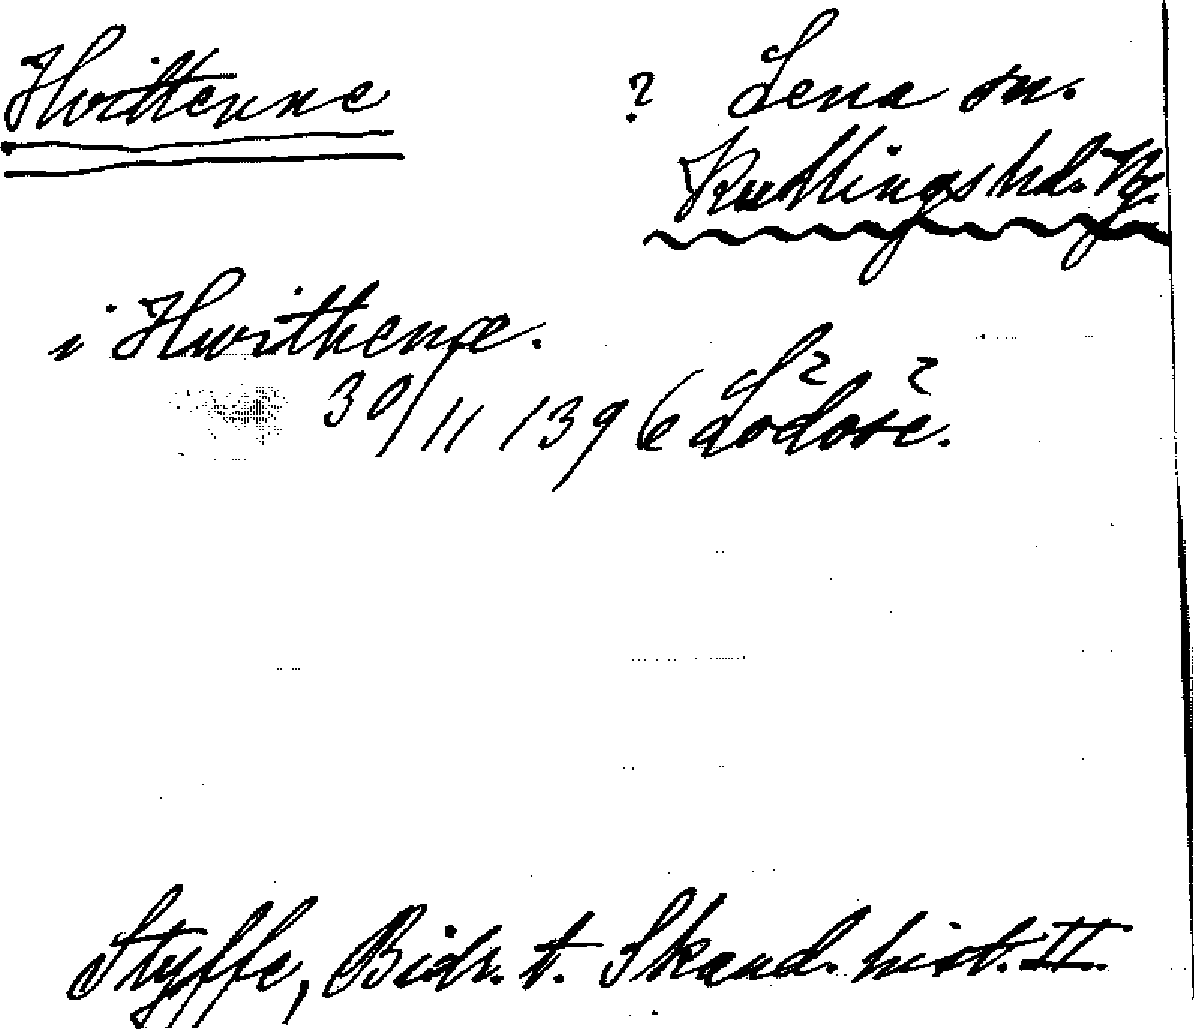 Hvittenne ? Lena sn.
Kullings hd. Vg.
i Hwithenæ.
30/11 1396 Lödöse.
Styffe, Bidr. t. Skand. hist. II.